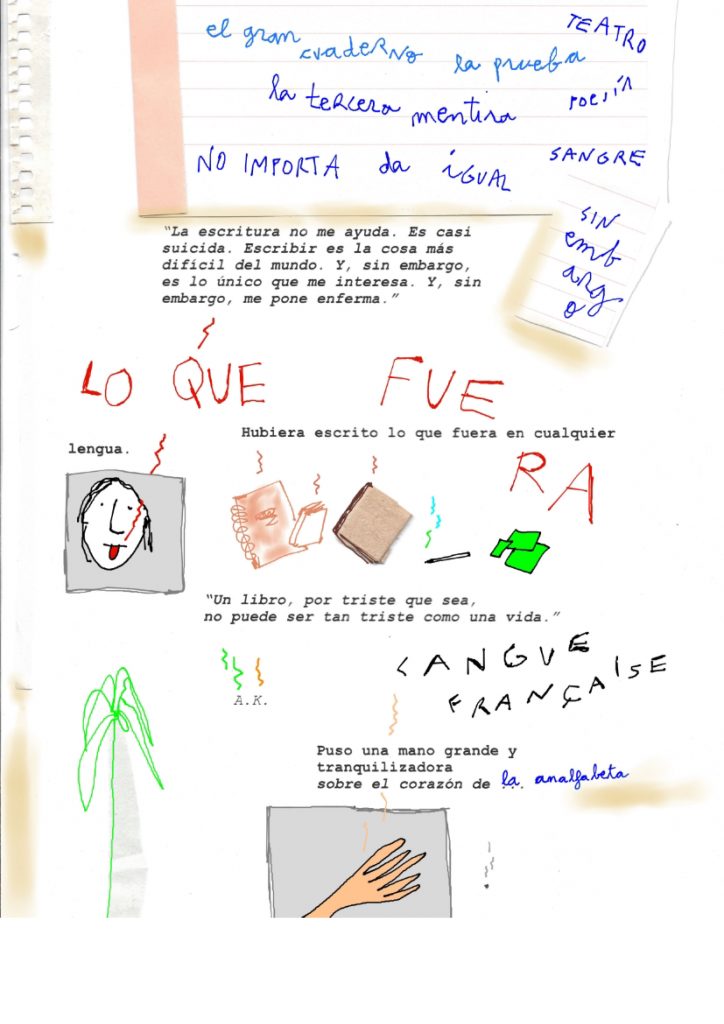 el gran cuaderno la prueba
TEATRO
la tercera mentira
POESÍA
NO IMPORTA da iGUAL
SANGRE
SIN
emb
arg
o
"La escritura no me ayuda. Es casi
suicida. Escribir es la cosa más
difícil del mundo. Y, sin embargo,
es lo único que me interesa. Y, sin
embargo, me pone enferma."
LO QUE FUE
RA
Hubiera escrito lo que fuera en cualquier
lengua.
"Un libro, por triste que sea,
no puede ser tan triste como una vida."
A.K.
LANGUE
FRANÇAISE
Puso una mano grande y
tranquilizadora
sobre el corazón de la analfabeta